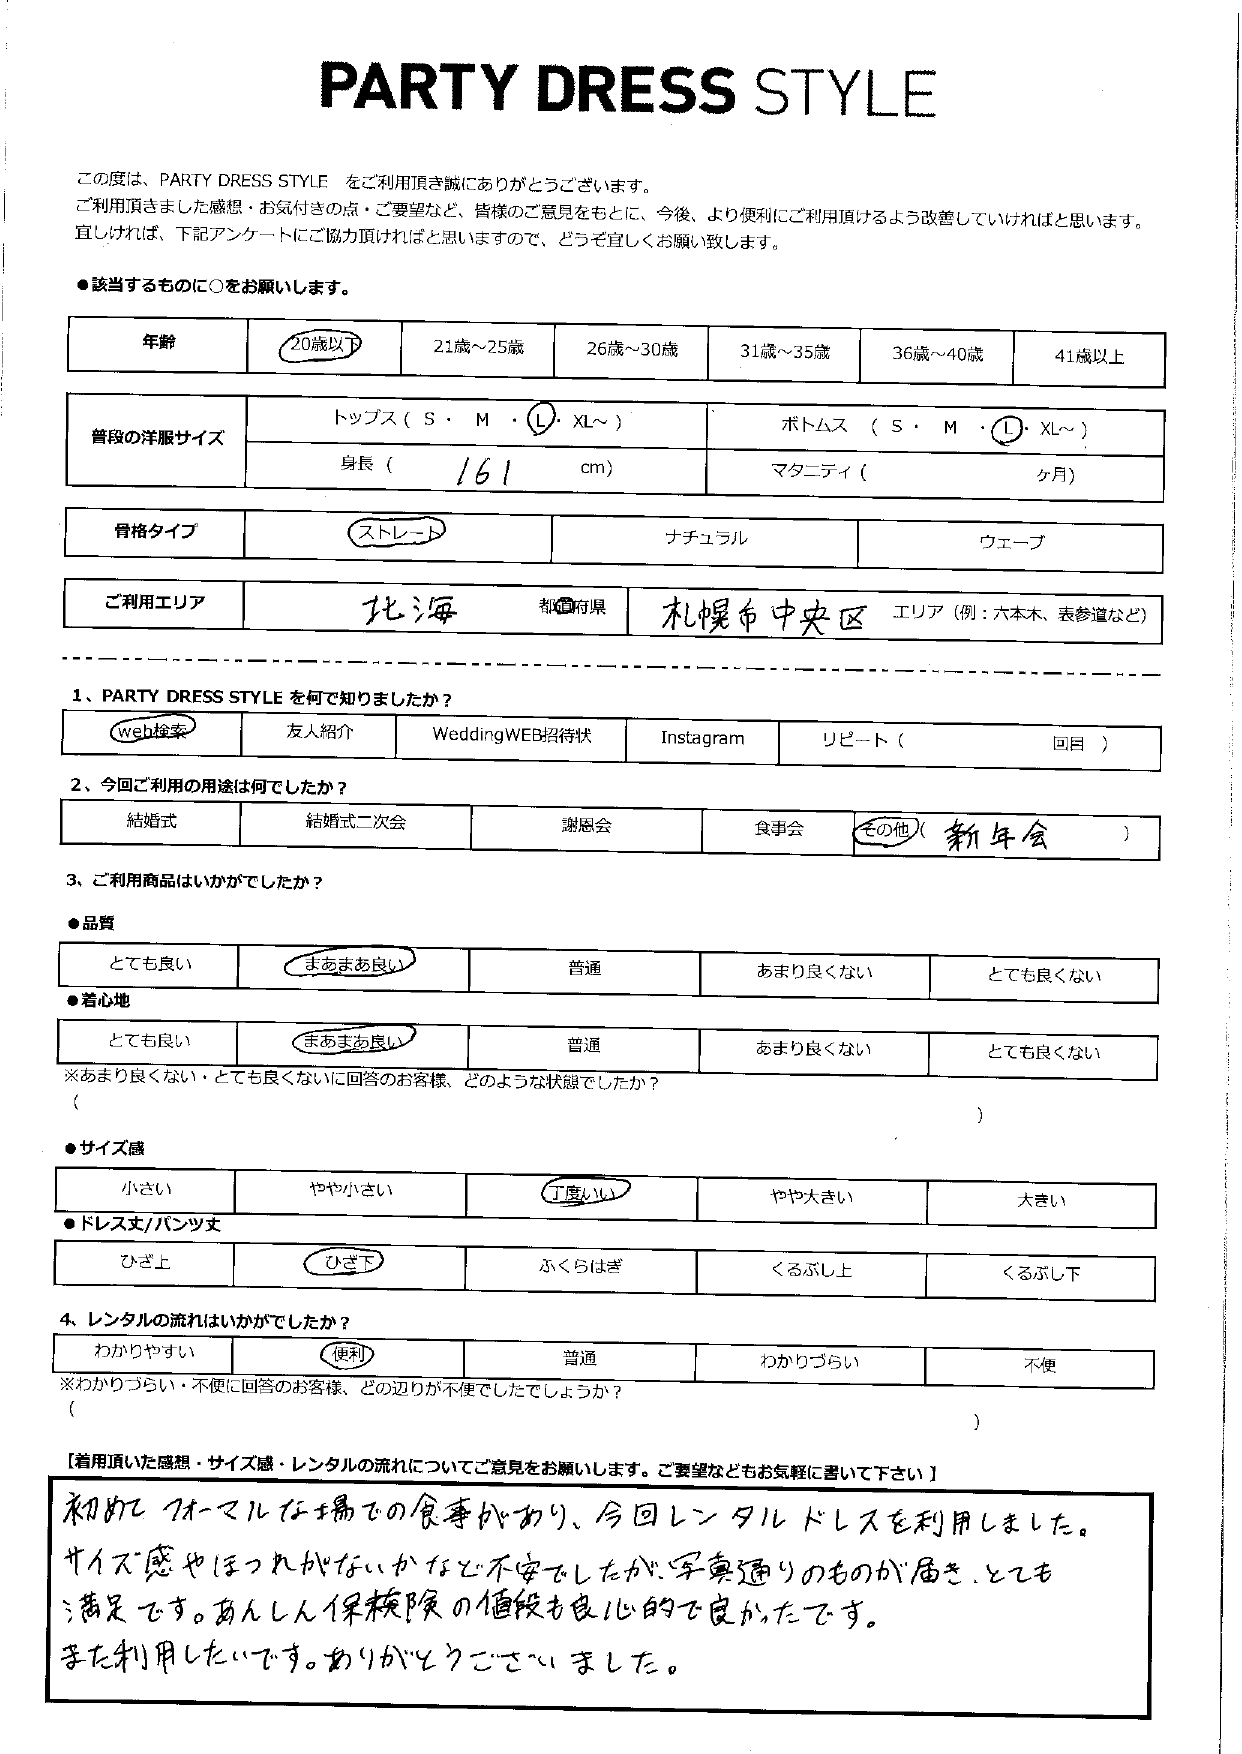 PARTY DRESS STYLE
この度は、PARTY DRESS STYLE をご利用頂き誠にありがとうございます。
ご利用頂きました感想・お気付きの点・ご要望など、皆様のご意見をもとに、今後、より便利にご利用頂けるよう改善していければと思います。
宜しければ、下記アンケートにご協力頂ければと思いますので、どうぞ宜しくお願い致します。
●該当するものに○をお願いします。
年齢 20歳以下 21歳～25歳 26歳～30歳 31歳～35歳 36歳～40歳 41歳以上
普段の洋服サイズ トップス（ S ・ M ・ L ・ XL～ ） ボトムス （ S ・ M ・ L ・ XL～ ）
身長（ 161 cm） マタニティ（ ヶ月）
骨格タイプ ストレート ナチュラル ウェーブ
ご利用エリア 北海 都道府県 札幌市中央区 エリア（例：六本木、表参道など）
1、PARTY DRESS STYLE を何で知りましたか？
web検索 友人紹介 WeddingWEB招待状 Instagram リピート（ 回目 ）
2、今回ご利用の用途は何でしたか？
結婚式 結婚式二次会 謝恩会 食事会 その他（ 新年会 ）
3、ご利用商品はいかがでしたか？
●品質
とても良い まあまあ良い 普通 あまり良くない とても良くない
●着心地
とても良い まあまあ良い 普通 あまり良くない とても良くない
※あまり良くない・とても良くないに回答のお客様、どのような状態でしたか？
（ ）
●サイズ感
小さい やや小さい 丁度いい やや大きい 大きい
●ドレス丈/パンツ丈
ひざ上 ひざ下 ふくらはぎ くるぶし上 くるぶし下
4、レンタルの流れはいかがでしたか？
わかりやすい 便利 普通 わかりづらい 不便
※わかりづらい・不便に回答のお客様、どの辺りが不便でしたでしょうか？
（ ）
【着用頂いた感想・サイズ感・レンタルの流れについてご意見をお願いします。ご要望などもお気軽に書いて下さい】
初めてフォーマルな場での食事があり、今回レンタルドレスを利用しました。
サイズ感やほつれがないかなど不安でしたが、写真通りのものが届き、とても
満足です。あんしん保険の値段も良心的で良かったです。
また利用したいです。ありがとうございました。